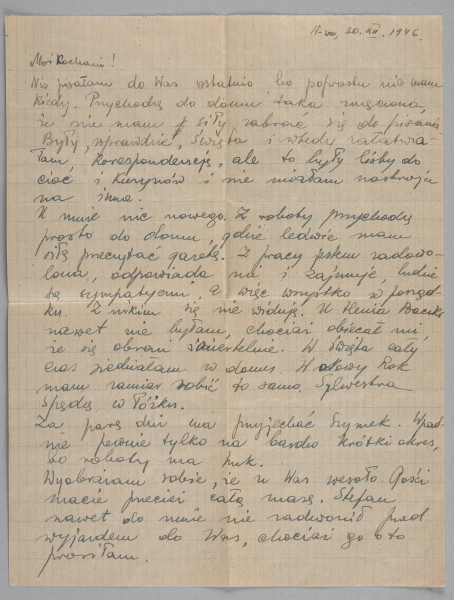 W-wa, 30.XII.1946.
Moi Kochani!
Nie pisałam do Was ostatnio bo poprostu nie mam
kiedy. Przychodzę do domu taka zmęczona,
że nie mam siły zabrać się do pisania.
Były, wprawdzie, Święta i wtedy załatwia-
łam korespondencję, ale to były listy do
cioć i kuzynów i nie miałam nastroju
na inne.
U mnie nic nowego. Z roboty przychodzę
prosto do domu, gdzie ledwie mam
siłę przeczytać gazetę. Z pracy jestem zadowo-
lona, odpowiada mi i zajmuje, ludzie
są sympatyczni, a więc wszystko w porząd-
ku. Z nikim się nie widuję. U Henia
nawet nie byłam, chociaż obiecał mi,
że się obrazi śmiertelnie. W Święta cały
czas siedziałam w domu. W Nowy Rok
mam zamiar robić to samo. Sylwestra
Spędzę w łóżku.
Za parę dni ma przyjechać Szymek. Wpad-
nie pewnie tylko na bardzo krótki okres,
bo roboty ma huk.
Wyobrażam sobie, że u Was wesoło. Gości
macie przecież całą masę. Stefan
nawet do mnie nie zadzwonił przed
wyjazdem do Was, chociaż go o to
prosiłam.